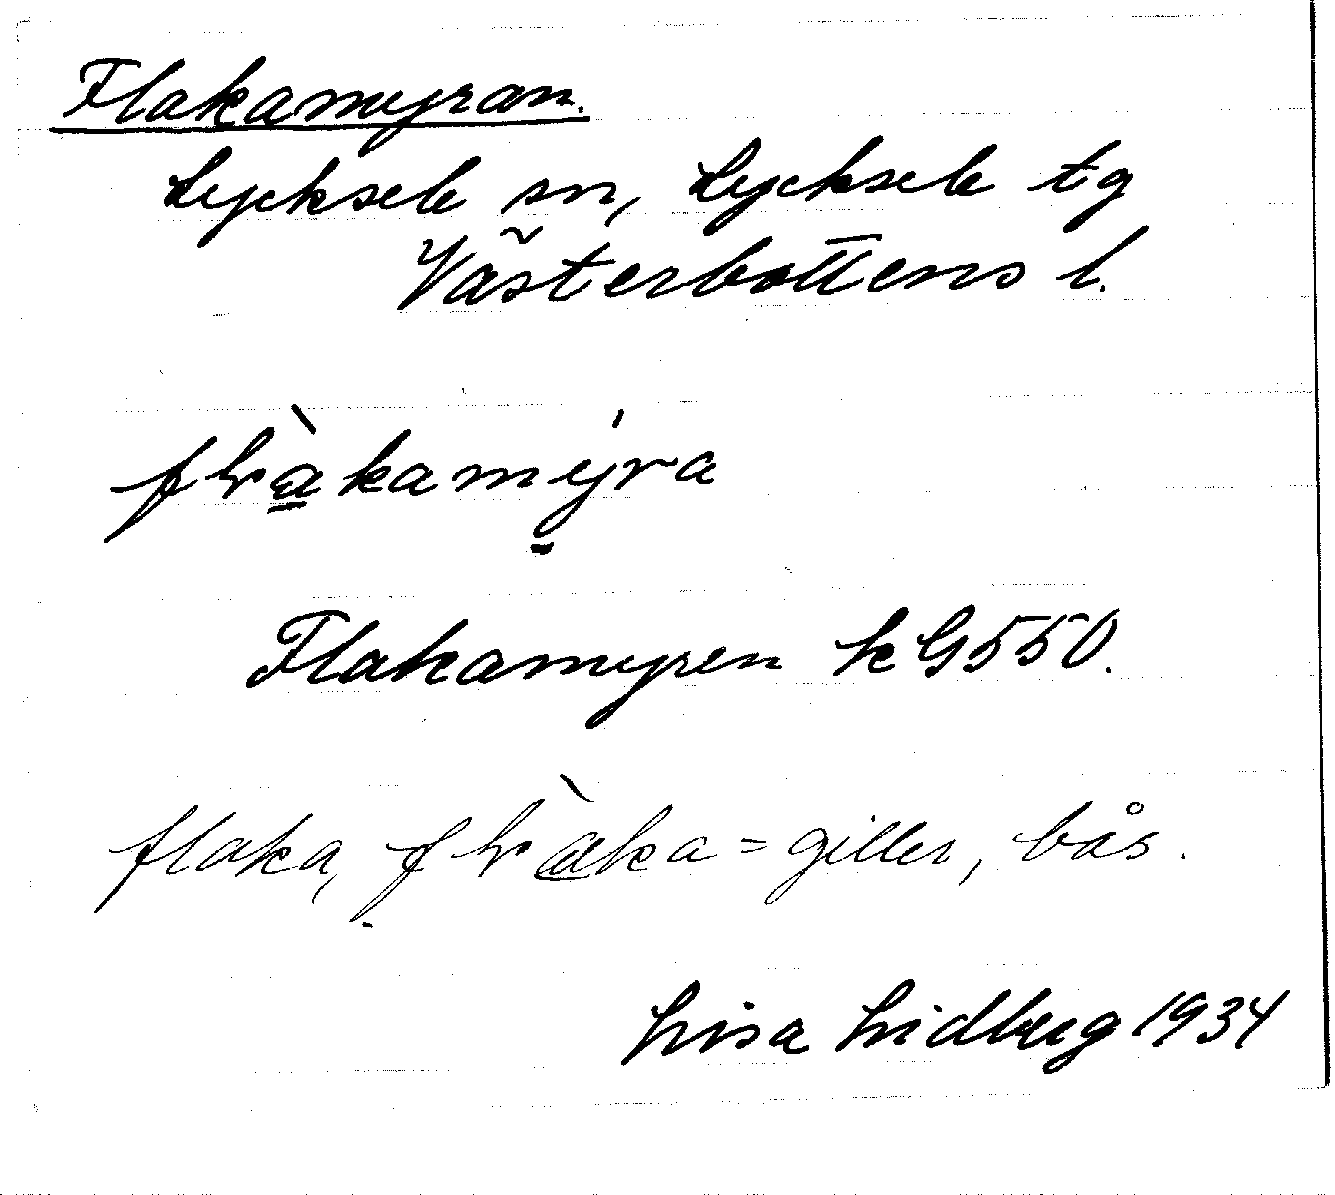 Flakamyran.
Lycksele sn, Lycksele tg
Västerbottens l.
flàkamýra
Flakamyren kG550.
flaka, flàka = giller, bås.
Lisa Lidberg 1934